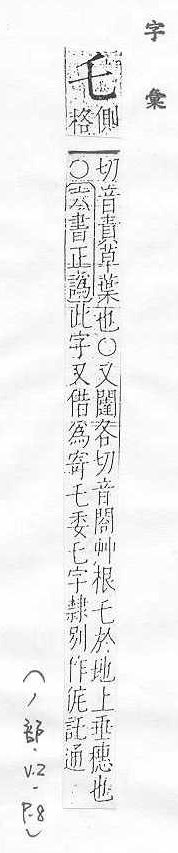 字彙
乇
側格
切音責草葉也○又闥各切音閣艸根乇於地上垂穗也
○六書正譌此字又借爲寄乇委乇字隸別作侂託通
(丿部.V.2-P-8)